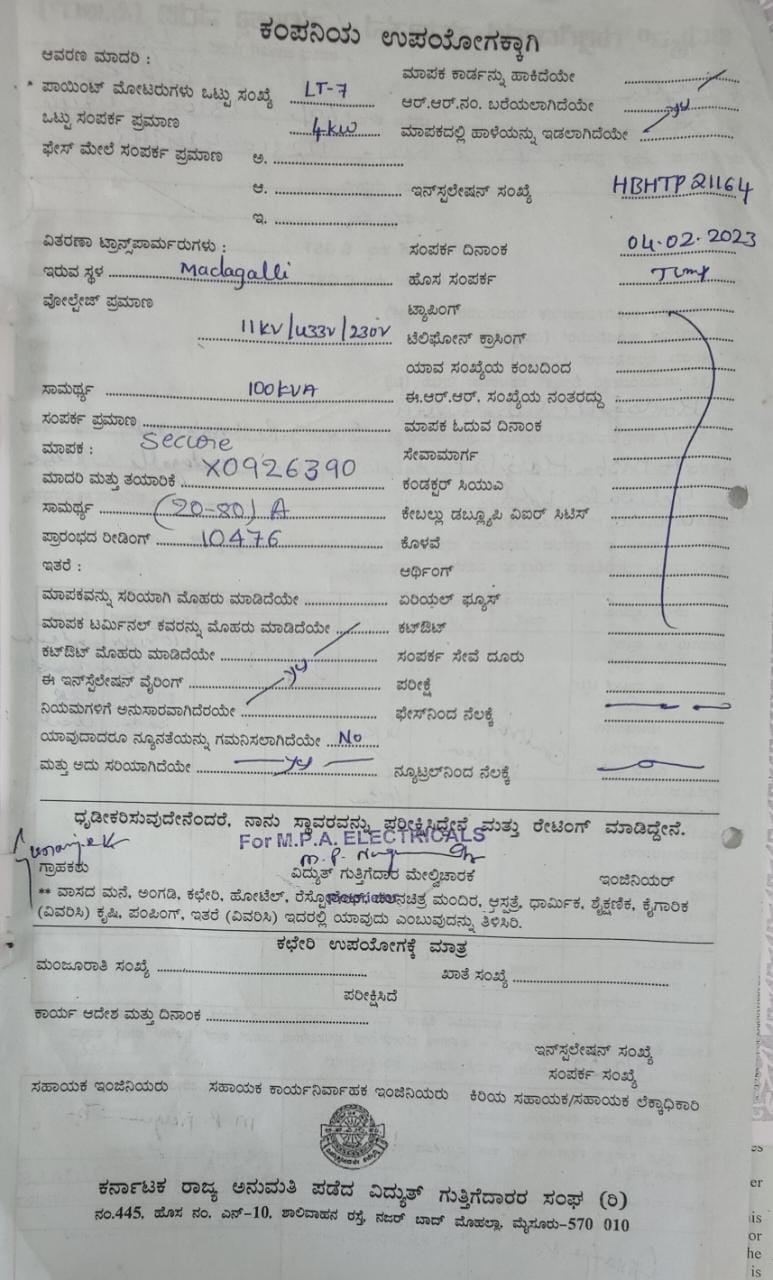 ಕಂಪನಿಯ ಉಪಯೋಗಕ್ಕಾಗಿ
ಆವರಣ ಮಾದರಿ :
ಮಾಪಕ ಕಾರ್ಡನ್ನು ಹಾಕಿದೆಯೇ
* ಪಾಯಿಂಟ್ ಮೋಟರುಗಳು ಒಟ್ಟು ಸಂಖ್ಯೆ LT-7
ಆರ್.ಆರ್.ನಂ. ಬರೆಯಲಾಗಿದೆಯೇ
ಒಟ್ಟು ಸಂಪರ್ಕ ಪ್ರಮಾಣ 4 kw
ಮಾಪಕದಲ್ಲಿ ಹಾಳೆಯನ್ನು ಇಡಲಾಗಿದೆಯೇ
ಫೇಸ್ ಮೇಲೆ ಸಂಪರ್ಕ ಪ್ರಮಾಣ ಅ.
ಆ.
ಇನ್‌ಸ್ಟಲೇಷನ್ ಸಂಖ್ಯೆ HBHTP 21164
ಇ.
ವಿತರಣಾ ಟ್ರಾನ್ಸ್‌ಫಾರ್ಮರುಗಳು :
ಸಂಪರ್ಕ ದಿನಾಂಕ 04.02.2023
ಇರುವ ಸ್ಥಳ Madagalli
ಹೊಸ ಸಂಪರ್ಕ
ವೋಲ್ಟೇಜ್ ಪ್ರಮಾಣ
ಟ್ಯಾಪಿಂಗ್
11kv/433v/230v
ಟೆಲಿಫೋನ್ ಕ್ರಾಸಿಂಗ್
ಯಾವ ಸಂಖ್ಯೆಯ ಕಂಬದಿಂದ
ಸಾಮರ್ಥ್ಯ 100kVA
ಈ.ಆರ್.ಆರ್. ಸಂಖ್ಯೆಯ ನಂತರದ್ದು
ಸಂಪರ್ಕ ಪ್ರಮಾಣ
ಮಾಪಕ ಓದುವ ದಿನಾಂಕ
ಮಾಪಕ : Secure
ಸೇವಾಮಾರ್ಗ
ಮಾದರಿ ಮತ್ತು ತಯಾರಿಕೆ X0926390
ಕಂಡಕ್ಟರ್ ಸಿಯುಎ
ಸಾಮರ್ಥ್ಯ (20-80) A
ಕೇಬಲ್ಲು ಡಬ್ಲ್ಯೂಪಿ ವಿಐರ್ ಸಿಟಿಸ್
ಪ್ರಾರಂಭದ ರೀಡಿಂಗ್ 10476
ಕೊಳವೆ
ಇತರೆ :
ಆರ್ಥಿಂಗ್
ಮಾಪಕವನ್ನು ಸರಿಯಾಗಿ ಮೊಹರು ಮಾಡಿದೆಯೇ
ಏರಿಯಲ್ ಫ್ಯೂಸ್
ಮಾಪಕ ಟರ್ಮಿನಲ್ ಕವರನ್ನು ಮೊಹರು ಮಾಡಿದೆಯೇ
ಕಟ್‌ಔಟ್
ಕಟ್‌ಔಟ್ ಮೊಹರು ಮಾಡಿದೆಯೇ
ಸಂಪರ್ಕ ಸೇವೆ ದೂರು
ಈ ಇನ್‌ಸ್ಟೆಲೇಷನ್ ವೈರಿಂಗ್
ಪರೀಕ್ಷೆ
ನಿಯಮಗಳಿಗೆ ಅನುಸಾರವಾಗಿದೆರಯೇ
ಫೇಸ್‌ನಿಂದ ನೆಲಕ್ಕೆ
ಯಾವುದಾದರೂ ನ್ಯೂನತೆಯನ್ನು ಗಮನಿಸಲಾಗಿದೆಯೇ No
ಮತ್ತು ಅದು ಸರಿಯಾಗಿದೆಯೇ
ನ್ಯೂಟ್ರಲ್‌ನಿಂದ ನೆಲಕ್ಕೆ
ಧೃಡೀಕರಿಸುವುದೇನೆಂದರೆ, ನಾನು ಸ್ಥಾವರವನ್ನು ಪರೀಕ್ಷಿಸಿದ್ದೇನೆ ಮತ್ತು ರೇಟಿಂಗ್ ಮಾಡಿದ್ದೇನೆ.
For M.P.A. ELECTRICALS
ಗ್ರಾಹಕರು ವಿದ್ಯುತ್ ಗುತ್ತಿಗೆದಾರ ಮೇಲ್ವಿಚಾರಕ ಇಂಜಿನಿಯರ್
** ವಾಸದ ಮನೆ, ಅಂಗಡಿ, ಕಛೇರಿ, ಹೋಟೆಲ್, ಮಂದಿರ, ಆಸ್ಪತ್ರೆ, ಧಾರ್ಮಿಕ, ಶೈಕ್ಷಣಿಕ, ಕೈಗಾರಿಕ
(ವಿವರಿಸಿ) ಕೃಷಿ, ಪಂಪಿಂಗ್, ಇತರೆ (ವಿವರಿಸಿ) ಇದರಲ್ಲಿ ಯಾವುದು ಎಂಬುವುದನ್ನು ತಿಳಿಸಿರಿ.
ಕಛೇರಿ ಉಪಯೋಗಕ್ಕೆ ಮಾತ್ರ
ಮಂಜೂರಾತಿ ಸಂಖ್ಯೆ ಖಾತೆ ಸಂಖ್ಯೆ
ಪರೀಕ್ಷಿಸಿದೆ
ಕಾರ್ಯ ಆದೇಶ ಮತ್ತು ದಿನಾಂಕ
ಇನ್‌ಸ್ಟಲೇಷನ್ ಸಂಖ್ಯೆ
ಸಂಪರ್ಕ ಸಂಖ್ಯೆ
ಸಹಾಯಕ ಇಂಜಿನಿಯರು ಸಹಾಯಕ ಕಾರ್ಯನಿರ್ವಾಹಕ ಇಂಜಿನಿಯರು ಕಿರಿಯ ಸಹಾಯಕ/ಸಹಾಯಕ ಲೆಕ್ಕಾಧಿಕಾರಿ
ಕರ್ನಾಟಕ ರಾಜ್ಯ ಅನುಮತಿ ಪಡೆದ ವಿದ್ಯುತ್ ಗುತ್ತಿಗೆದಾರರ ಸಂಘ (ರಿ)
ನಂ.445, ಹೊಸ ನಂ. ಎನ್-10, ಶಾಲಿವಾಹನ ರಸ್ತೆ, ನಜರ್ ಬಾದ್ ಮೊಹಲ್ಲಾ, ಮೈಸೂರು-570 010